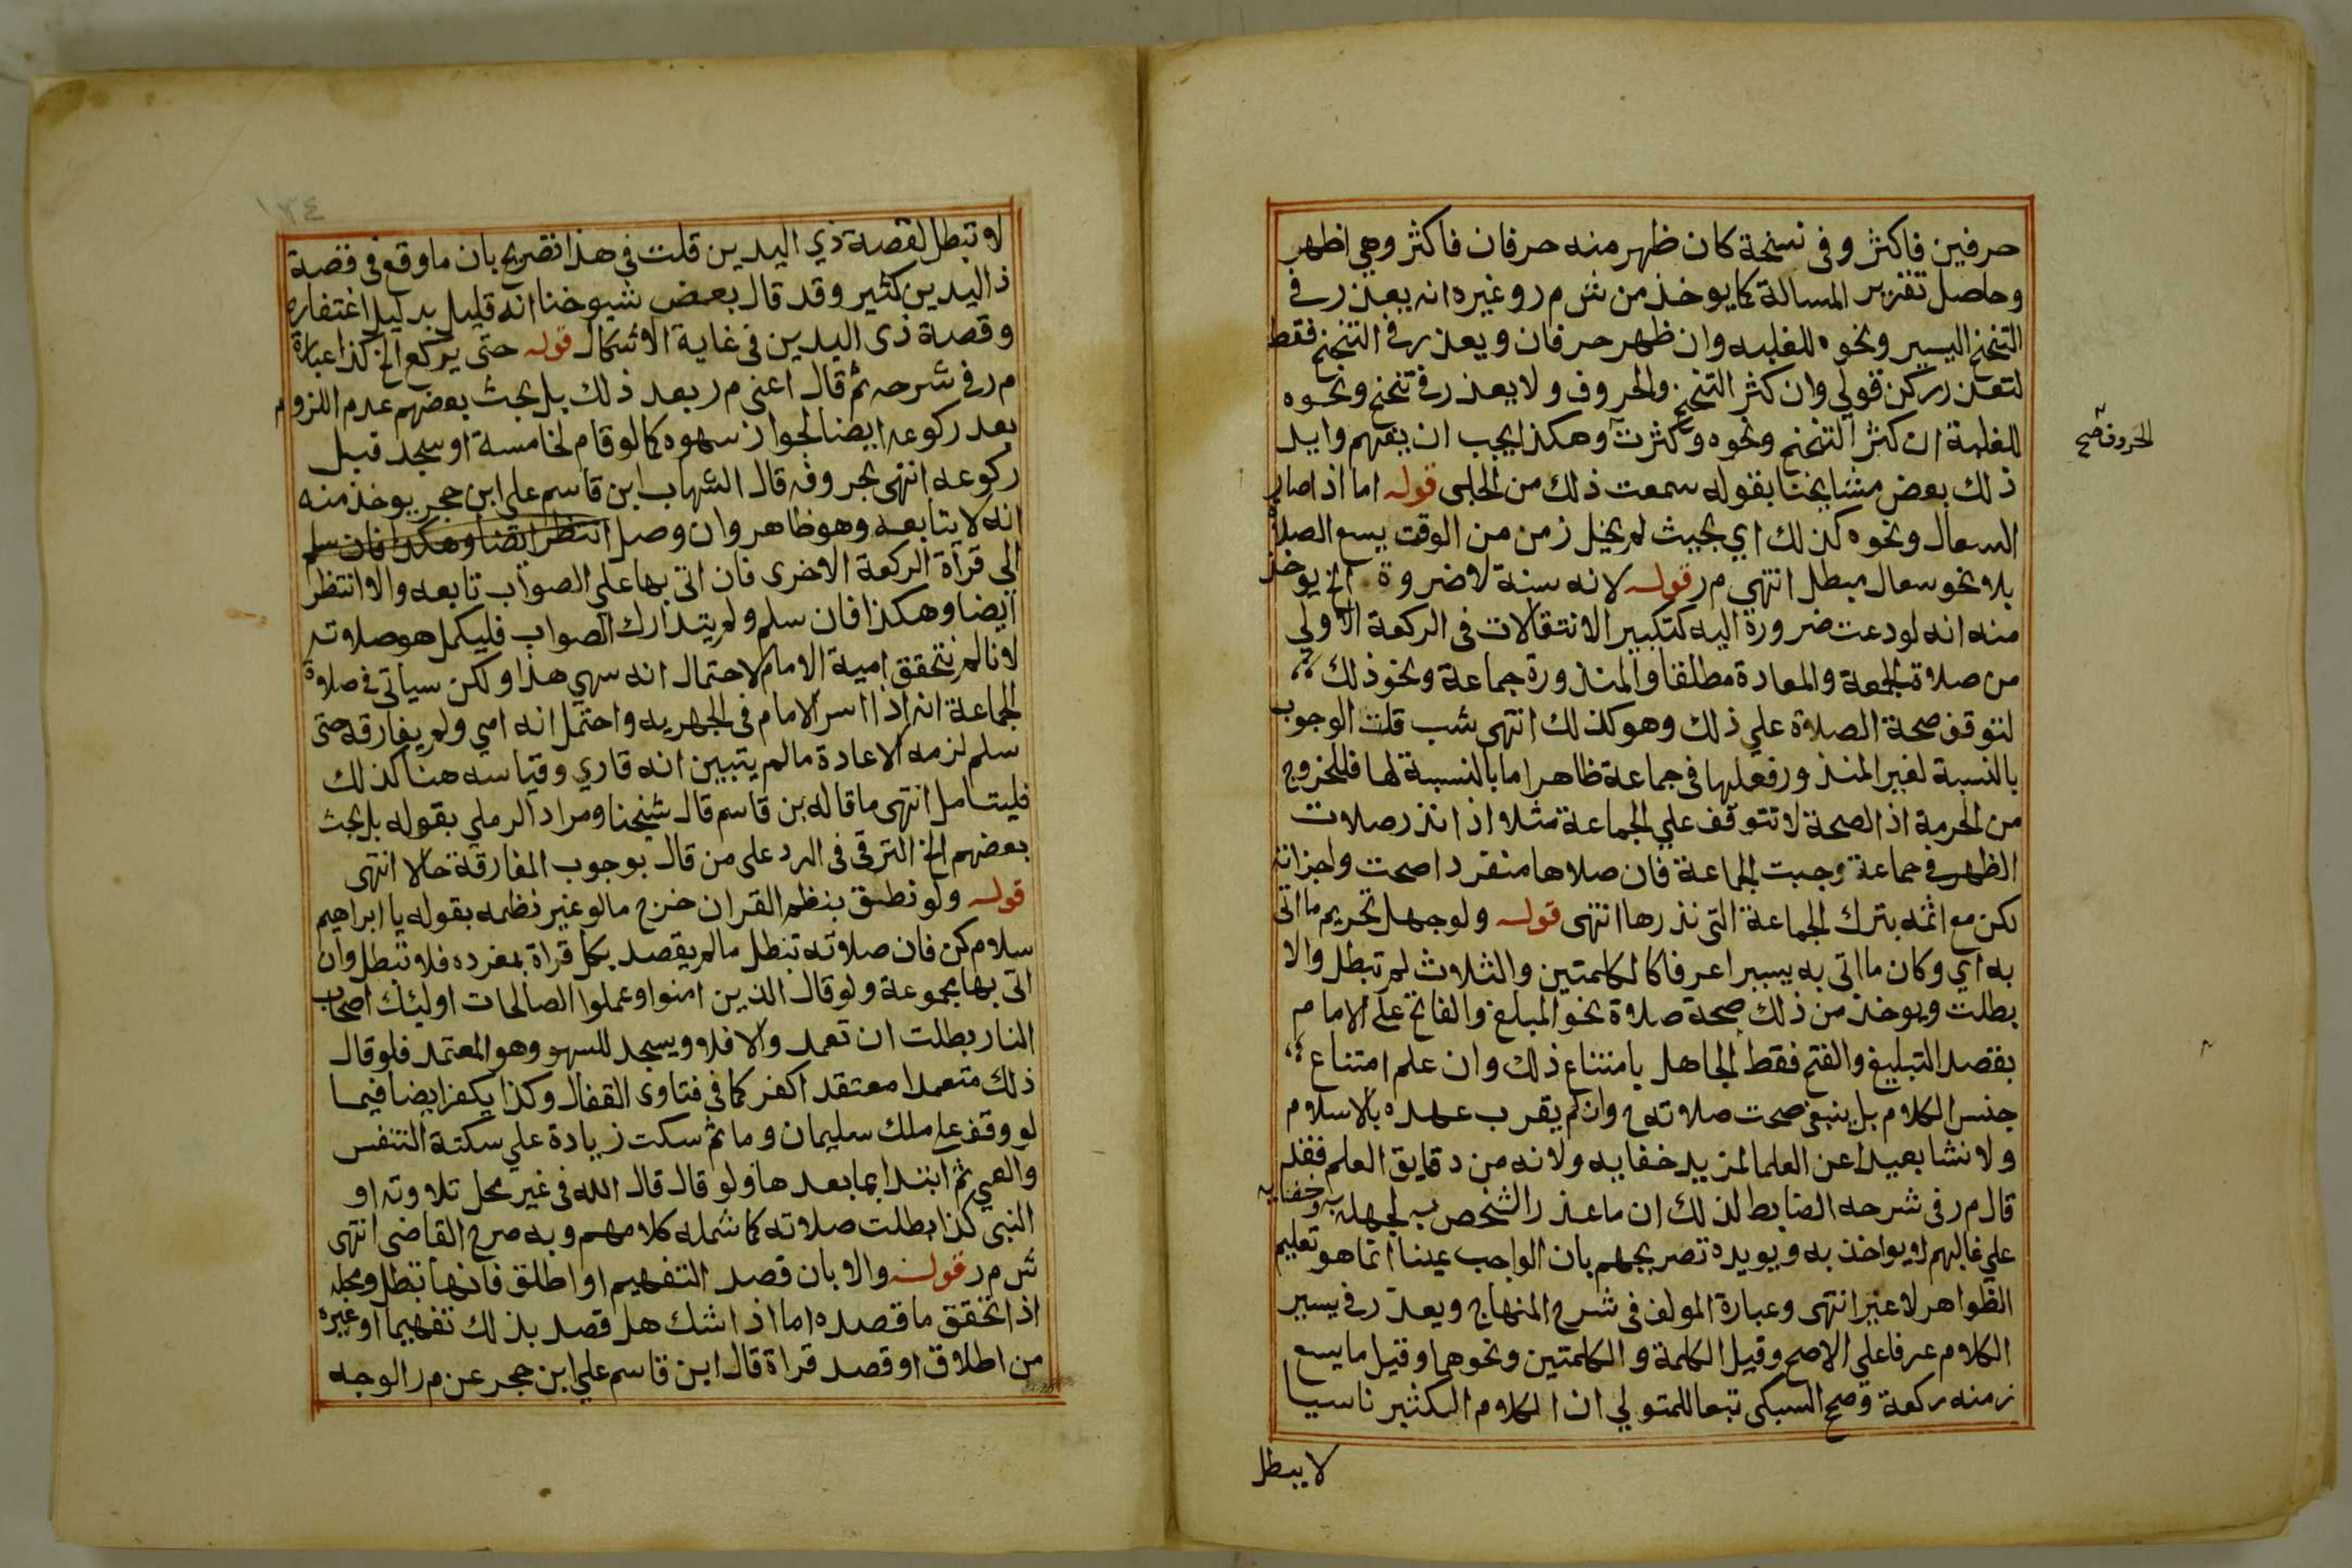 حرفين فاكثر وفى نسخة كان ظهر منه حرفان فاكثر وهي اظهر
وحاصل تقرير المسالة كما يوخذ من ش م ر وغيره انه يعذر في
التنحنح اليسير ونحوه للغلبه وان ظهر حرفان ويعذر في التنحنح فقط
لتعذر ركن قولي وان كثر التنحنح والحروف ولا يعذر في تنحنح ونحوه
للغلبة ان كثر التنحنح ونحوه وكثرت وهكذا يجب ان يفهم وايد
الحروف صح
ذلك بعض مشايخنا بقوله سمعت ذلك من الحلبى قوله اما اذا صار
السعال ونحوه كذلك اي بحيث لم يخل زمن من الوقت يسع الصلاة
بلا نحو سعال مبطل انتهى م ر قوله لانه سنة لا ضروة الخ يوخذ
منه انه لو دعت ضرورة اليه كتكبير الانتقالات فى الركعة الاولي
من صلاة الجمعة والمعادة مطلقا والمنذورة جماعة ونحو ذلك
لتوقف صحة الصلاة علي ذلك وهو كذلك انتهى شب قلت الوجوب
بالنسبة لغير المنذور فعلها فى جماعة ظاهر اما بالنسبة لها فللخروج
من الحرمة اذ الصحة لا تتوقف علي الجماعة مثلا اذا نذر صلات
الظهر في جماعة وجبت الجماعة فان صلاها منفردا صحت واجزاته
لكن مع اثمه بترك الجماعة التى نذرها انتهى قوله ولو جهل تحريم ما اتى
به اي وكان ما اتى به يسيرا عرفا كالكلمتين والثلاث لم تبطل والا
بطلت ويوخذ من ذلك صحة صلاة نحو المبلغ والفاتح على الامام
بقصد التبليغ والفتح فقط الجاهل بامتناع ذلك وان علم امتناع
جنس الكلام بل ينبغي صحت صلاته ح وان لم يقرب عهده بالاسلام
ولا نشا بعيدا عن العلما لمزيد خفايه ولانه من دقايق العلم فقد
قال م ر فى شرحه الضابط لذلك ان ما عذر الشخص به لجهله به وخفايه
علي غالبهم لا يواخذ به ويويده تصريحهم بان الواجب عينا انما هو تعليم
الظواهر لا غير انتهى وعبارة المولف فى شرح المنهاج ويعذر في يسير
الكلام عرفا علي الاصح وقيل الكلمة والكلمتين ونحوهما وقيل ما يسع
زمنه ركعة وصحح السبكى تبعا للمتولي ان الكلام الكثير ناسيا
لا يبطل
١٣٤
لا تبطل لقصة ذي اليدين قلت في هذا تصريح بان ما وقع في قصة
ذ اليدين كثير وقد قال بعض شيوخنا انه قليل بدليل اغتفاره
وقصة ذى اليدين فى غاية الاشكال قوله حتى يركع الخ كذا عبارة
م ر فى شرحه ثم قال اعنى م ر بعد ذلك بل بحث بعضهم عدم اللزوم
بعد ركوعه ايضا لجواز سهوه كما لو قام لخامسة او سجد قبل
ركوعه انتهى بحروفه قال الشهاب ابن قاسم على ابن حجر يوخذ منه
انه لا يتابعه وهو ظاهر وان وصل انتظر ايضا وهكذا فان سلم
الي قرآة الركعة الاخرى فان اتى بها علي الصواب تابعه والا انتظر
ايضا وهكذا فان سلم ولم يتدارك الصواب فليكمل هو صلاته
لانا لم نتحقق امية الامام لاحتمال انه سهي هذا ولكن سياتى في صلاة
الجماعة انه اذا اسر الامام فى الجهريه واحتمل انه امي ولم يفارقه حتى
سلم لزمه الاعادة ما لم يتبين انه قاري وقياسه هنا كذلك
فليتامل انتهى ما قاله بن قاسم قال شيخنا ومراد الرملي بقوله بل بحث
بعضهم الخ الترقى فى الرد على من قال بوجوب المفارقة حالا انتهى
قوله ولو نطق بنظم القران خرج ما لو غير نظمه بقوله يا ابراهيم
سلام كن فان صلاته تبطل ما لم يقصد بكل قراة بمفرده فلا تبطل وان
اتى بها مجموعة ولو قال الذين امنوا وعملوا الصالحات اولئك اصحاب
النار بطلت ان تعمد والا فلا ويسجد للسهو وهو المعتمد فلو قال
ذلك متعمدا معتقدا كفر كما فى فتاوى القفال وكذا يكفر ايضا فيما
لو وقف على ملك سليمان وما ثم سكت زيادة علي سكتة التنفس
والعي ثم ابتدا بما بعدها ولو قال قال الله فى غير محل تلاوته او
النبى كذا بطلت صلاته كما شمله كلامهم وبه صرح القاضى انتهى
ش م ر قوله والا بان قصد التفهيم او اطلق فانها تبطل ومحله
اذا تحقق ما قصده اما اذا شك هل قصد بذلك تفهيما او غيره
من اطلاق او قصد قراة قال ابن قاسم علي ابن حجر عن م ر الوجه